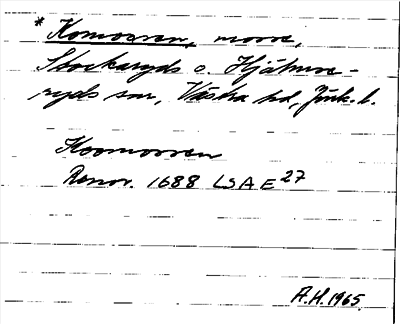 * Komossen, mosse,
Stockaryds o. Hjälmse-
ryds snr, Västra hd, Jönk. l.
Koomossen
Renov. 1688 LSA E27
A.H. 1965